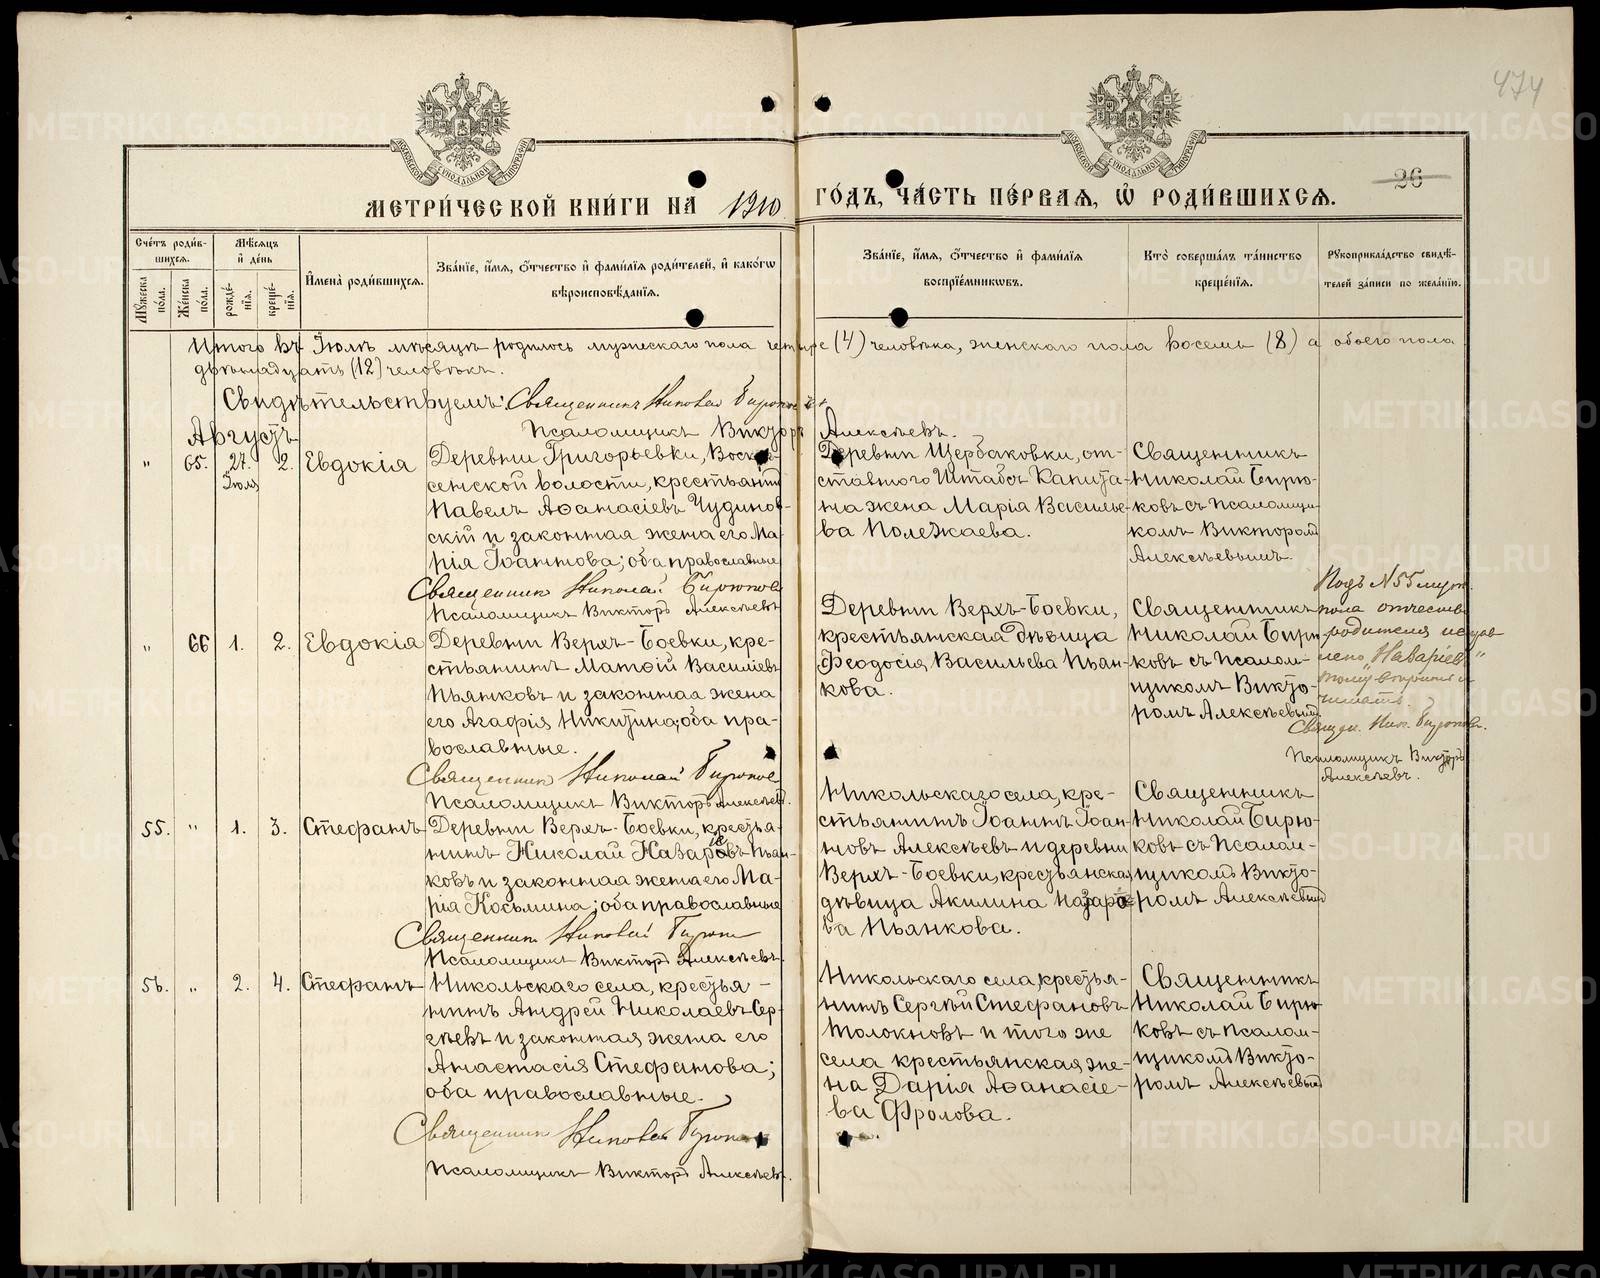 474
МЕТРИ́ЧЕСКОЙ КНИ́ГИ НА 1910 ГО́ДЪ, ЧА́СТЬ ПЕ́РВАЯ, Ѡ҆ РОДИ́ВШИХСЯ.
26
Сче́тъ роди́в-
шихся.
Мѣ́сяцъ
и҆ де́нь
Мꙋ́жеска
по́ла.
Же́нска
по́ла.
рожде́-
нїя.
креще́-
нїя.
И҆мена̀ роди́вшихся.
Зва́нїе, и҆́мя, ѻ҆́тчество и҆ фамилїя роди́телей, и҆ како́гѡ
вѣроисповѣ́данїя.
Зва́нїе, и҆́мя, ѻ҆́тчество и҆ фами́лїя
воспрїе́мниковъ.
Кто̀ соверша́лъ та́инство
креще́нїя.
Рꙋкоприкла́дство свидѣ́-
телей за́писи по жела́нїю.
Итого въ Іюлѣ мѣсяцѣ родилось мужескаго пола четыре (4) человѣка, женскаго пола восемь (8) а обоего пола
двѣнадцать (12) человѣкъ.
Свидѣтельствуемъ: Священникъ Николай Бирюковъ
Псаломщикъ Викторъ Алексѣевъ.
Августъ
"
65.
27.
Іюля
2.
Евдокія
Деревни Григорьевки, Воскре-
сенской волости, крестьянинъ
Павелъ Аѳанасіевъ Чудинов-
скій и законная жена его Ма-
рія Іоаннова; оба православные
Священникъ Николай Бирюковъ
Псаломщикъ Викторъ Алексѣевъ
Деревни Щербаковки, от-
ставного Штабсъ Капита-
на жена Марія Василье-
ва Полежаева.
Священникъ
Николай Бирю-
ковъ съ псаломщи-
комъ Викторомъ
Алексѣевымъ.
"
66
1.
2.
Евдокія
Деревни Верхъ-Боевки, кре-
стьянинъ Матѳій Василіевъ
Пьянковъ и законная жена
его Агафія Никитина; оба пра-
вославные.
Священникъ Николай Бирюковъ
Псаломщикъ Викторъ Алексѣевъ.
Деревни Верхъ-Боевки,
крестьянская дѣвица
Ѳеодосія Васильева Пьян-
кова.
Священникъ
Николай Бирю-
ковъ съ псалом-
щикомъ Викто-
ромъ Алексѣевымъ
Подъ №55 муж.
пола отчество
родителя исправ
лено „Назаріев"
тому вѣрить и
читать.
Священ. Ник. Бирюковъ.
Псаломщикъ Викторъ
Алексѣевъ.
55.
"
1.
3.
Стефанъ
Деревни Верхъ-Боевки, крестья-
нинъ Николай Назаріевъ Пьян-
ковъ и законная жена его Ма-
рія Косьмина; оба православные
Священникъ Николай Бирюк
Псаломщикъ Викторъ Алексѣевъ.
Никольскаго села, кре-
стьянинъ Іоаннъ Іоан-
новъ Алексѣевъ и деревни
Верхъ-Боевки, крестьянская
дѣвица Акилина Назаріе-
ва Пьянкова.
Священникъ
Николай Бирю-
ковъ съ псалом-
щикомъ Викто-
ромъ Алексѣевымъ
56.
"
2.
4.
Стефанъ
Никольскаго села, крестья-
нинъ Андрей Николаевъ Сер-
гѣевъ и законная жена его
Анастасія Стефанова;
оба православные.
Священникъ Николай Бирюковъ
Псаломщикъ Викторъ Алексѣевъ.
Никольскаго села, крестья-
нинъ Сергѣй Стефановъ
Толокновъ и того же
села крестьянская же-
на Дарія Аѳанасіе-
ва Фролова.
Священникъ
Николай Бирю-
ковъ съ псалом-
щикомъ Викто-
ромъ Алексѣевымъ